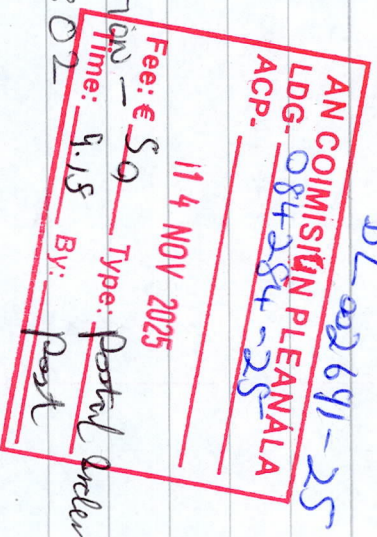 DL-002691-25
AN COIMISIÚN PLEANÁLA
LDG- 084284-25
ACP-
14 NOV 2025
Fee: € 50 Type: Postal Order
Time: 9.15 By: Post